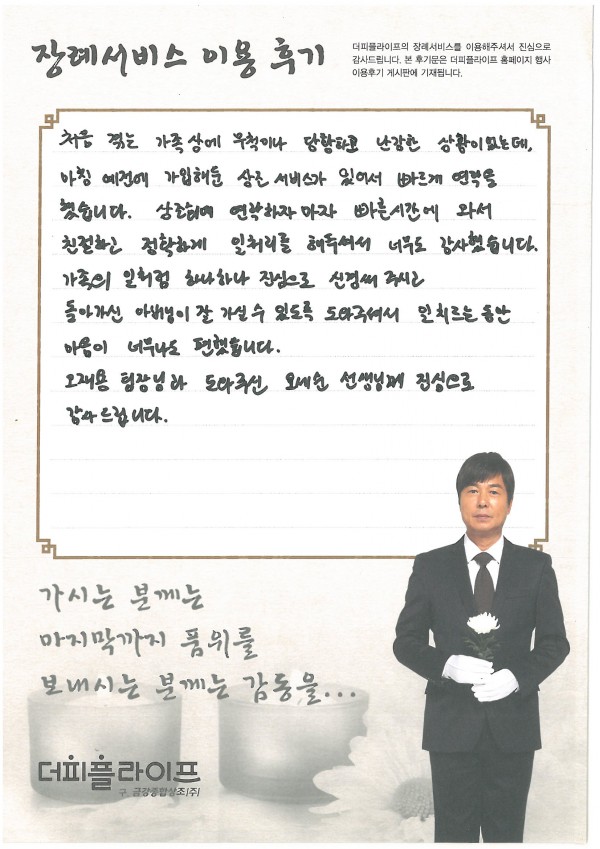 장례서비스 이용 후기
더피플라이프의 장례서비스를 이용해주셔서 진심으로
감사드립니다. 본 후기문은 더피플라이프 홈페이지 행사
이용후기 게시판에 기재됩니다.
처음 겪는 가족상에 무척이나 당황하고 난감한 상황이었는데,
마침 예전에 가입해둔 상조 서비스가 있어서 빠르게 연락을
했습니다. 상조회에 연락하자마자 빠른시간에 와서
친절하고 정확하게 일처리를 해주셔서 너무도 감사했습니다.
가족의 일처럼 하나하나 진심으로 신경써 주시고
돌아가신 아버님이 잘 가실 수 있도록 도와주셔서 일 치르는 동안
마음이 너무나도 편했습니다.
오재용 팀장님과 도와주신 오세순 선생님께 진심으로
감사드립니다.
가시는 분께는
마지막까지 품위를
보내시는 분께는 감동을...
더피플라이프
구. 금강종합상조(주)